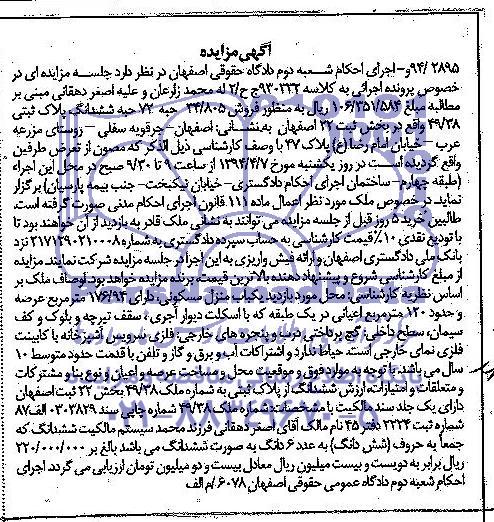 آگهی مزایده
۹۴/۲۸۹۵و- اجرای احکام شعبه دوم دادگاه حقوقی اصفهان در نظر دارد جلسه مزایده ای در
خصوص پرونده اجرائی به کلاسه ۹۳۰۲۳۳ج ح/۲ له محمد زارعان و علیه اصغر دهقانی مبنی بر
مطالبه مبلغ ۱۰۶/۳۵۱/۵۸۴ ریال به منظور فروش ۳۴/۸۰۵ حبه ۷۲ حبه ششدانگ پلاک ثبتی
۴۹/۳۸ واقع در بخش ثبت ۲۲ اصفهان به نشانی: اصفهان – جرقویه سفلی – روستای مزرعه
عرب – خیابان امام رضا(ع) پلاک ۴۷ با وصف کارشناسی ذیل الذکر که مصون از تعرض طرفین
واقع گردیده است در روز یکشنبه مورخ ۱۳۹۴/۴/۷ از ساعت ۹ تا ۹/۳۰ صبح در محل این اجراء
(طبقه چهارم- ساختمان اجرای احکام دادگستری- خیابان نیکبخت- جنب بیمه پارسیان) برگزار
نماید در خصوص ملک مورد نظر اعمال ماده ۱۱۱ قانون اجرای احکام مدنی صورت گرفته است.
طالبین خرید ۵ روز قبل از جلسه مزایده می توانند به نشانی ملک قادر به بازدید از آن خواهند بود تا
با تودیع نقدی ۱۰٪ قیمت کارشناسی به حساب سپرده دادگستری به شماره ۲۱۷۱۲۹۰۲۱۰۰۰۸ نزد
بانک ملی دادگستری اصفهان و ارائه فیش واریزی به این اجرا در جلسه مزایده شرکت نمایند مزایده
از مبلغ کارشناسی شروع و پیشنهاد دهنده بالاترین قیمت، برنده مزایده خواهد بود. اوصاف ملک بر
اساس نظریه کارشناسی: محل مورد بازدید یکباب منزل مسکونی، دارای ۱۷۶/۹۴ مترمربع عرصه
و حدود ۱۲۰ مترمربع اعیانی در یک طبقه که با اسکلت دیوار آجری، سقف تیرچه و بلوک و کف
سیمان، سطح داخلی: گچ پرداختی درب و پنجره های خارجی: فلزی سرویس آشپزخانه با کابینت
فلزی نمای خارجی است، حیاط ندارد و اشتراکات آب و برق و گاز و تلفن با قدمت حدود متوسط ۱۰
سال می باشد. با توجه به موارد فوق و موقعیت محل و مساحت عرصه و اعیان و نوع بنا و مشترکات
و متعلقات و امتیازات، ارزش ششدانگ از پلاک ثبتی به شماره ملک ۴۹/۳۸ بخش ۲۲ ثبت اصفهان
دارای یک جلد سند مالکیت با مشخصات: شماره ملک ۴۹/۳۸ شماره چاپی سند ۰۳۰۳۸۲۹ الف۸۷
شماره ثبت ۲۲۲۴ دفتر ۴۵ نام مالک آقای اصغر دهقانی فرزند محمد سیستم مالکیت ششدانگ که
جمعا به حروف (شش دانگ) به عدد ۶ دانگ به صورت ششدانگ می باشد بالغ بر ۲۲۰/۰۰۰/۰۰۰
ریال برابر به دویست و بیست میلیون ریال معادل بیست و دو میلیون تومان ارزیابی می گردد. اجرای
احکام شعبه دوم دادگاه عمومی حقوقی اصفهان ۶۰۷۸/م الف